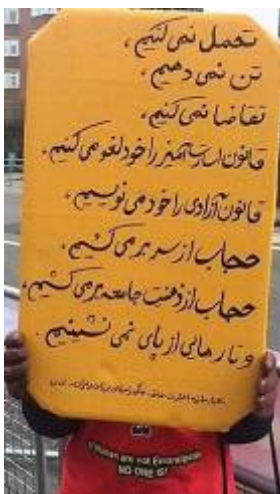 تحمل نمی کنیم،
تن نمی دهیم،
تقاضا نمی کنیم،
قانون اسارت آمیز را خود لغو می کنیم.
قانون آزادی را خود می نویسیم.
حجاب از سر بر می کشیم،
حجاب از ذهنیت جامعه بر می کشیم،
و تا رهایی از پای نمی نشینیم.
NO ONE IS!